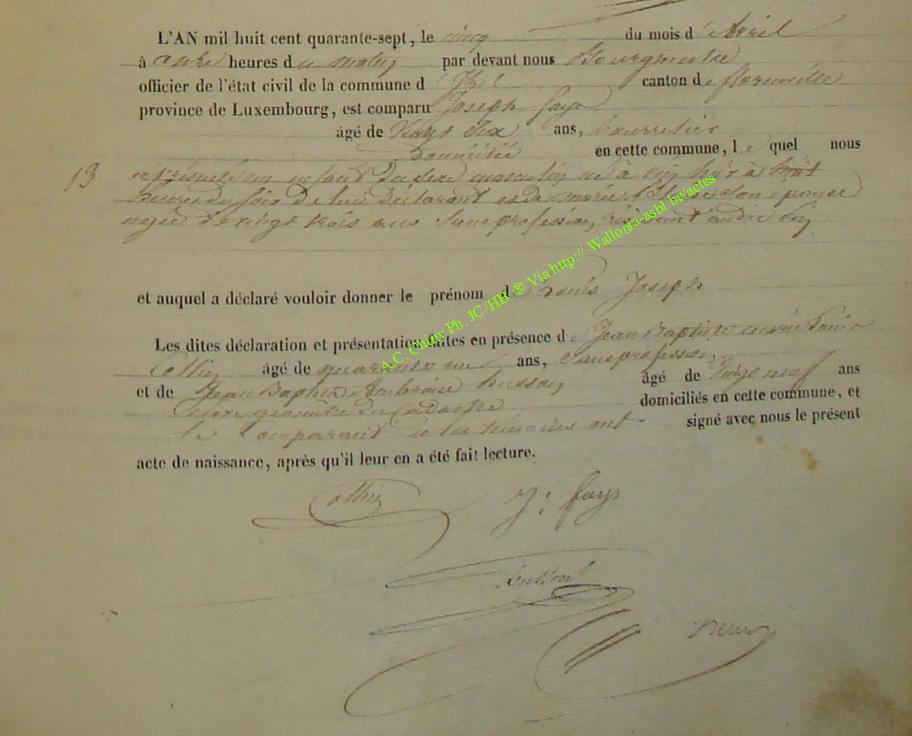 L'AN mil huit cent quarante-sept, le cinq du mois d'Avril
à onze heures du matin par devant nous Bourgmestre
officier de l'état civil de la commune d' canton de florenville
province de Luxembourg, est comparu Joseph fays
âgé de Vingt Six ans, bourrelier
Domicilié en cette commune, lequel nous
13 a présenté un enfant du sexe masculin né à hier à huit
heures du soir de lui Déclarant et de marie son épouse
agée de vingt trois ans Sans profession,
et auquel a déclaré vouloir donner le prénom de Louis Joseph
Les dites déclaration et présentation faites en présence de Jean Baptiste marie Louis
Collin âgé de quarante un ans, Sans profession
et de Jean Baptiste Ambroise husson âgé de Vingt neuf ans
géomètre du Cadastre domiciliés en cette commune, et
le Comparant et les témoins ont signé avec nous le présent
acte de naissance, après qu'il leur en a été fait lecture.
Collin J: fays
husson
A.C. Chiny Ph. JC/HB ® Via http:// Wallonia-asbl be/actes